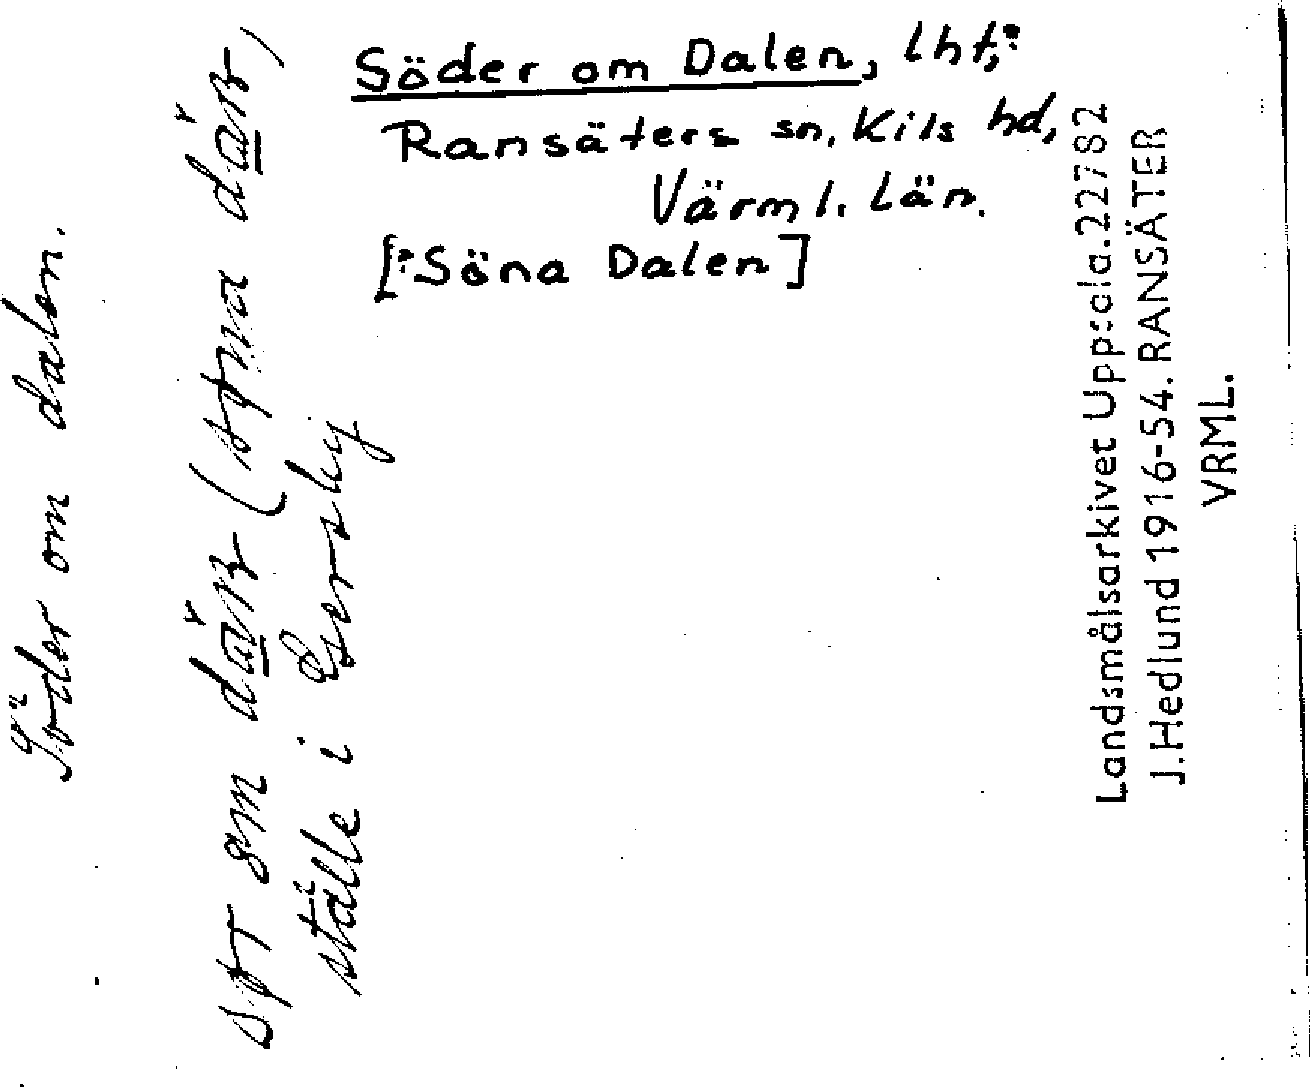 Söder om Dalen, lht,:
Ransäters sn, Kils hd,
Värml. Län.
[:Söna Dalen]
Söder om dalen.
ställe i Gersby
Landsmålsarkivet Uppsala. 22782
J. Hedlund 1916-54. RANSÄTER
VRML.